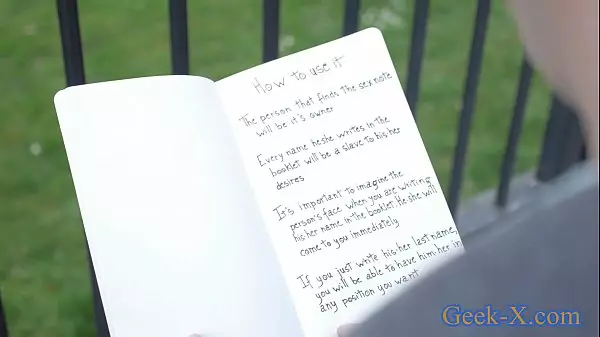 How to use it
The person that finds the sex note
will be it's owner
Every name heshe writes in the
booklet will be a slave to his her
desires
It's important to imagine the
person's face when you are writing
his her name in the booklet. He she will
come to you immediately
If you just write his her last name,
you will be able to have him her in
any position you want
Geek-X.com